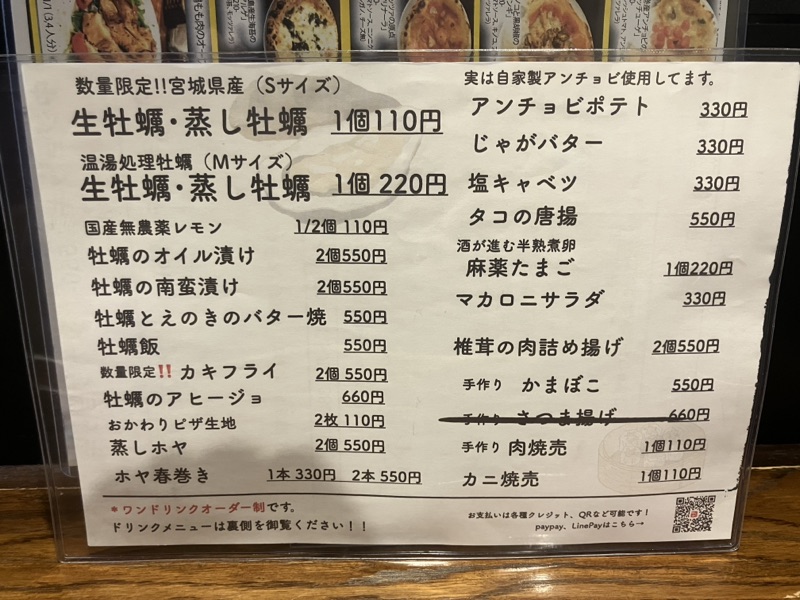 数量限定!!宮城県産（Sサイズ）
生牡蠣・蒸し牡蠣 1個110円
温湯処理牡蠣（Mサイズ）
生牡蠣・蒸し牡蠣 1個 220円
国産無農薬レモン 1/2個 110円
牡蠣のオイル漬け 2個550円
牡蠣の南蛮漬け 2個550円
牡蠣とえのきのバター焼 550円
牡蠣飯 550円
数量限定!! カキフライ 2個 550円
牡蠣のアヒージョ 660円
おかわりピザ生地 2枚 110円
蒸しホヤ 2個 550円
ホヤ春巻き 1本 330円 2本 550円
＊ワンドリンクオーダー制です。
ドリンクメニューは裏側を御覧ください！！
実は自家製アンチョビ使用してます。
アンチョビポテト 330円
じゃがバター 330円
塩キャベツ 330円
タコの唐揚 550円
酒が進む半熟煮卵
麻薬たまご 1個220円
マカロニサラダ 330円
椎茸の肉詰め揚げ 2個550円
手作り かまぼこ 550円
手作り さつま揚げ 660円
手作り 肉焼売 1個110円
カニ焼売 1個110円
お支払いは各種クレジット、QRなど可能です！
paypay、LinePayはこちら→